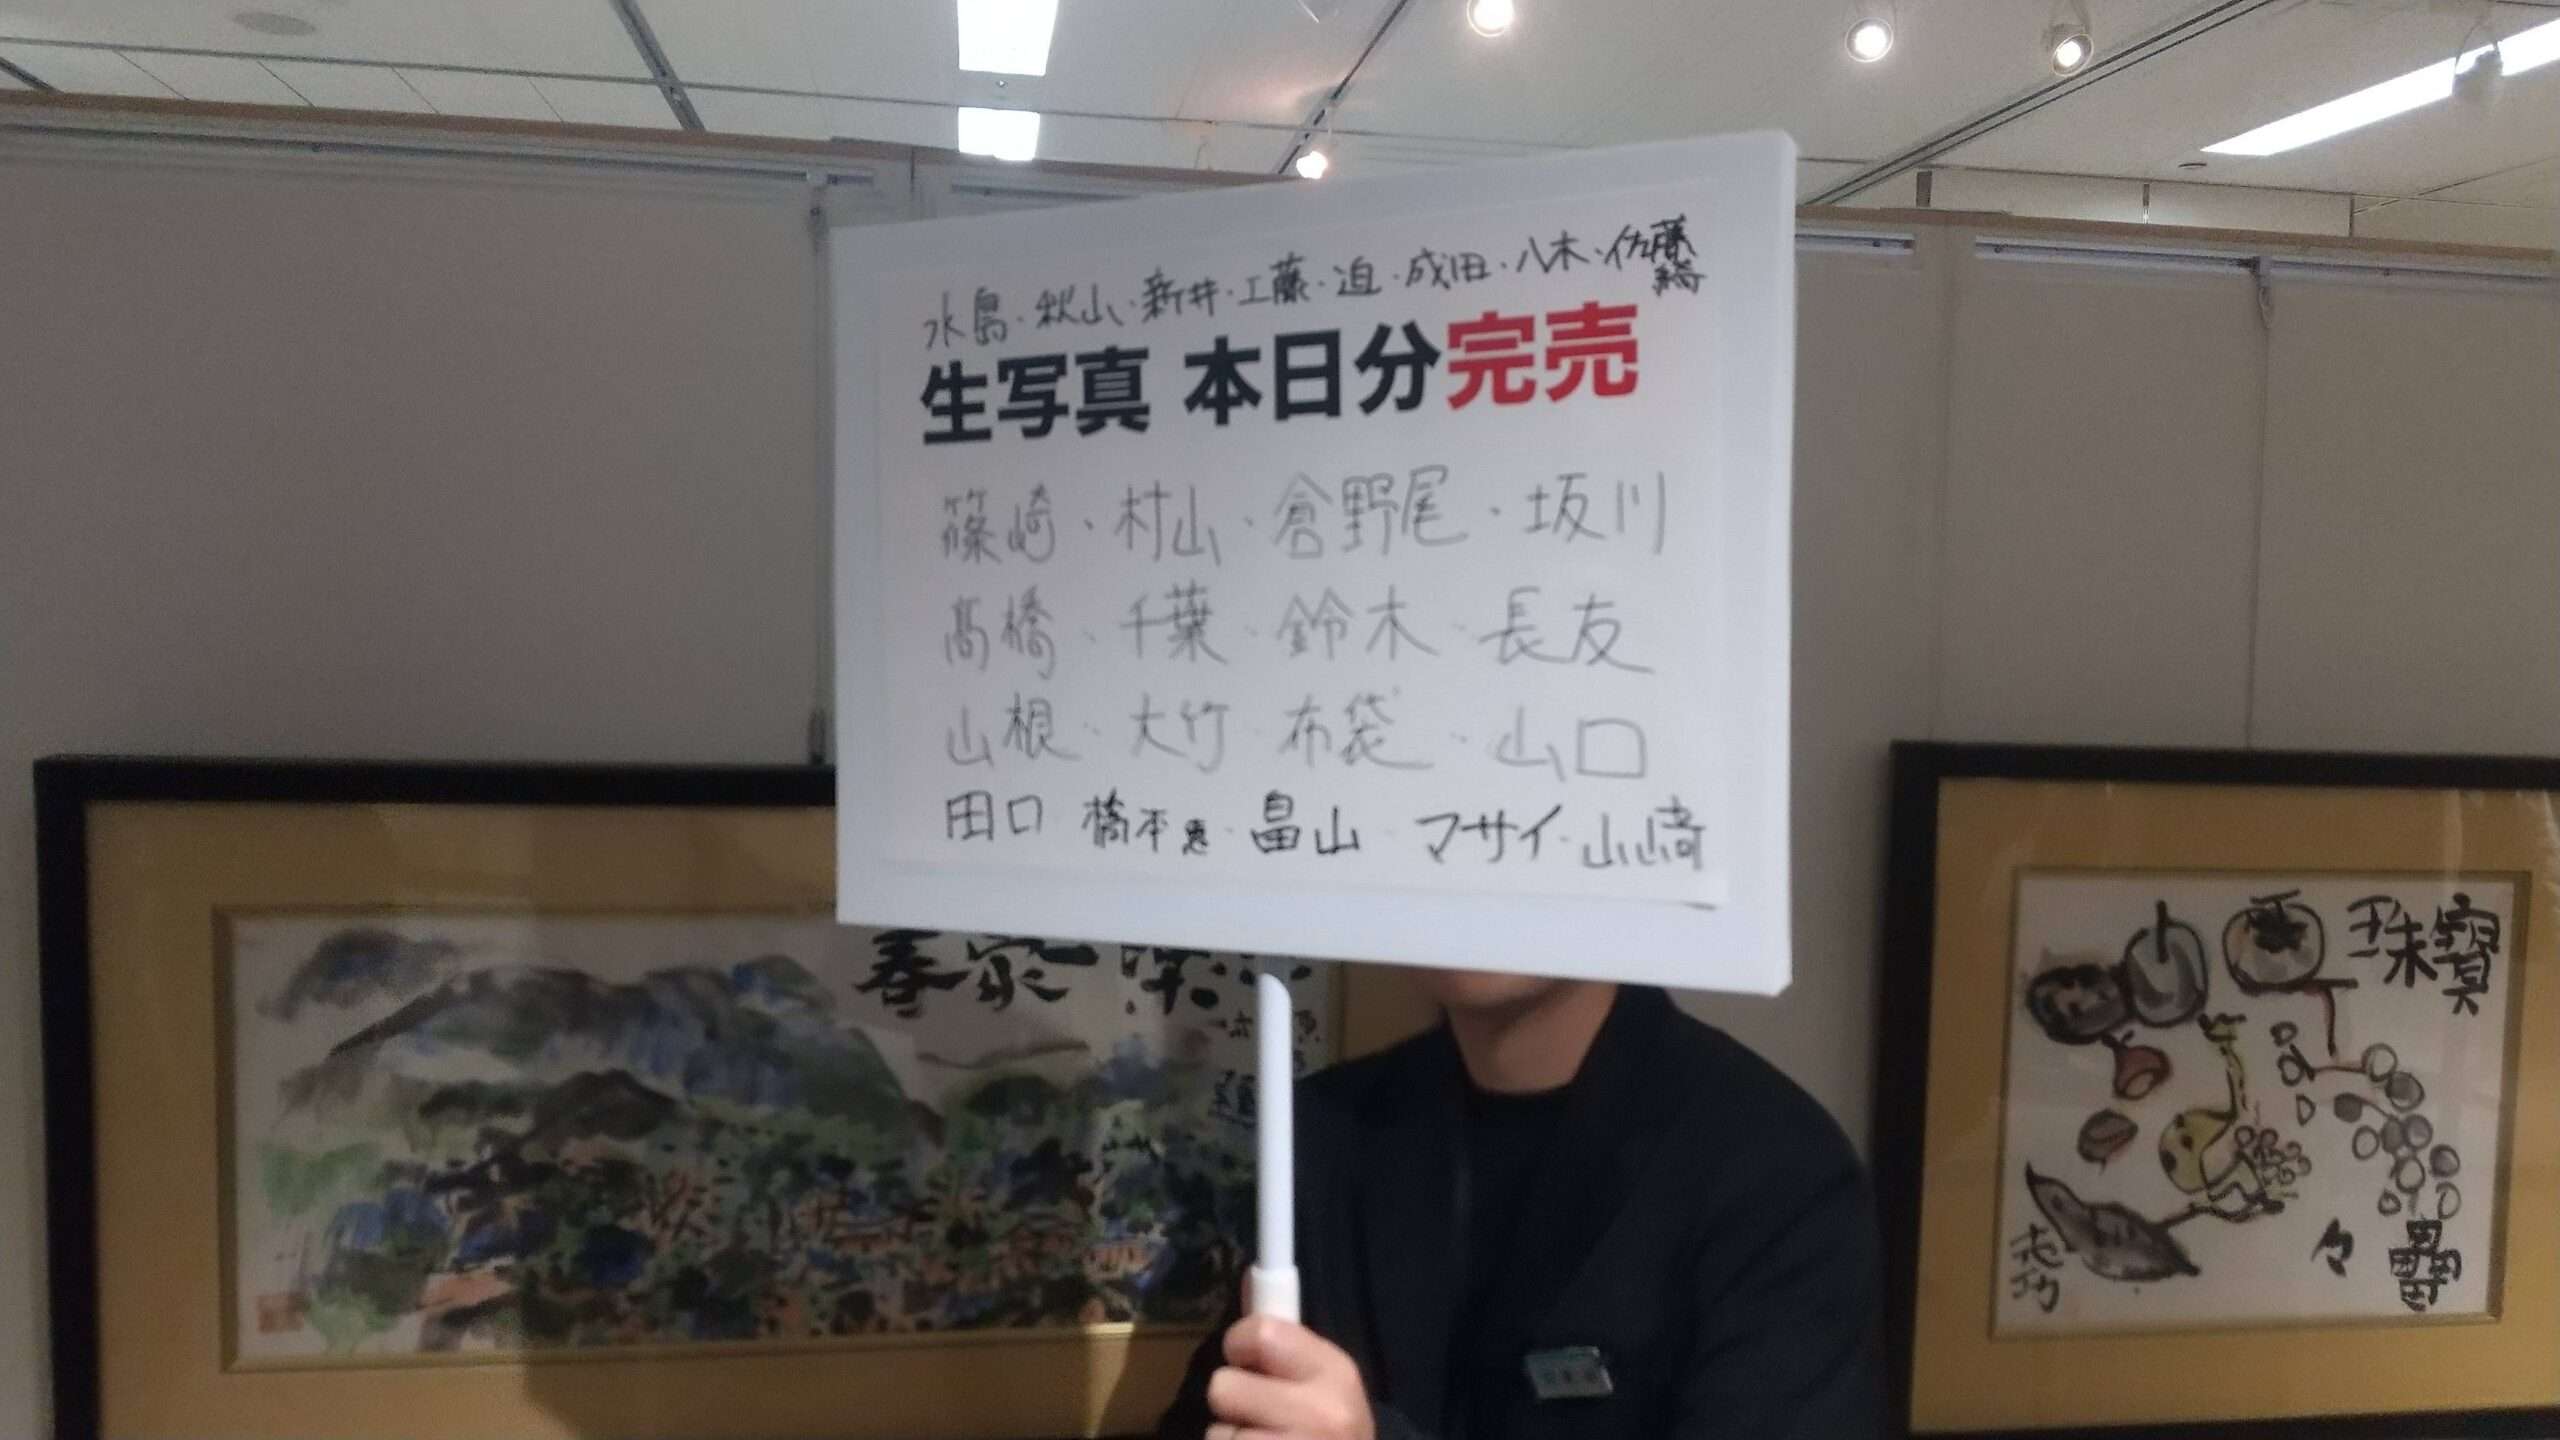 水島・秋山・新井・工藤・迫・成田・八木・佐藤綺
生写真 本日分完売
篠崎・村山・倉野尾・坂川
髙橋・千葉・鈴木・長友
山根・大竹・布袋・山口
田口・橋本恵・畠山・マサイ・山﨑
珠寶